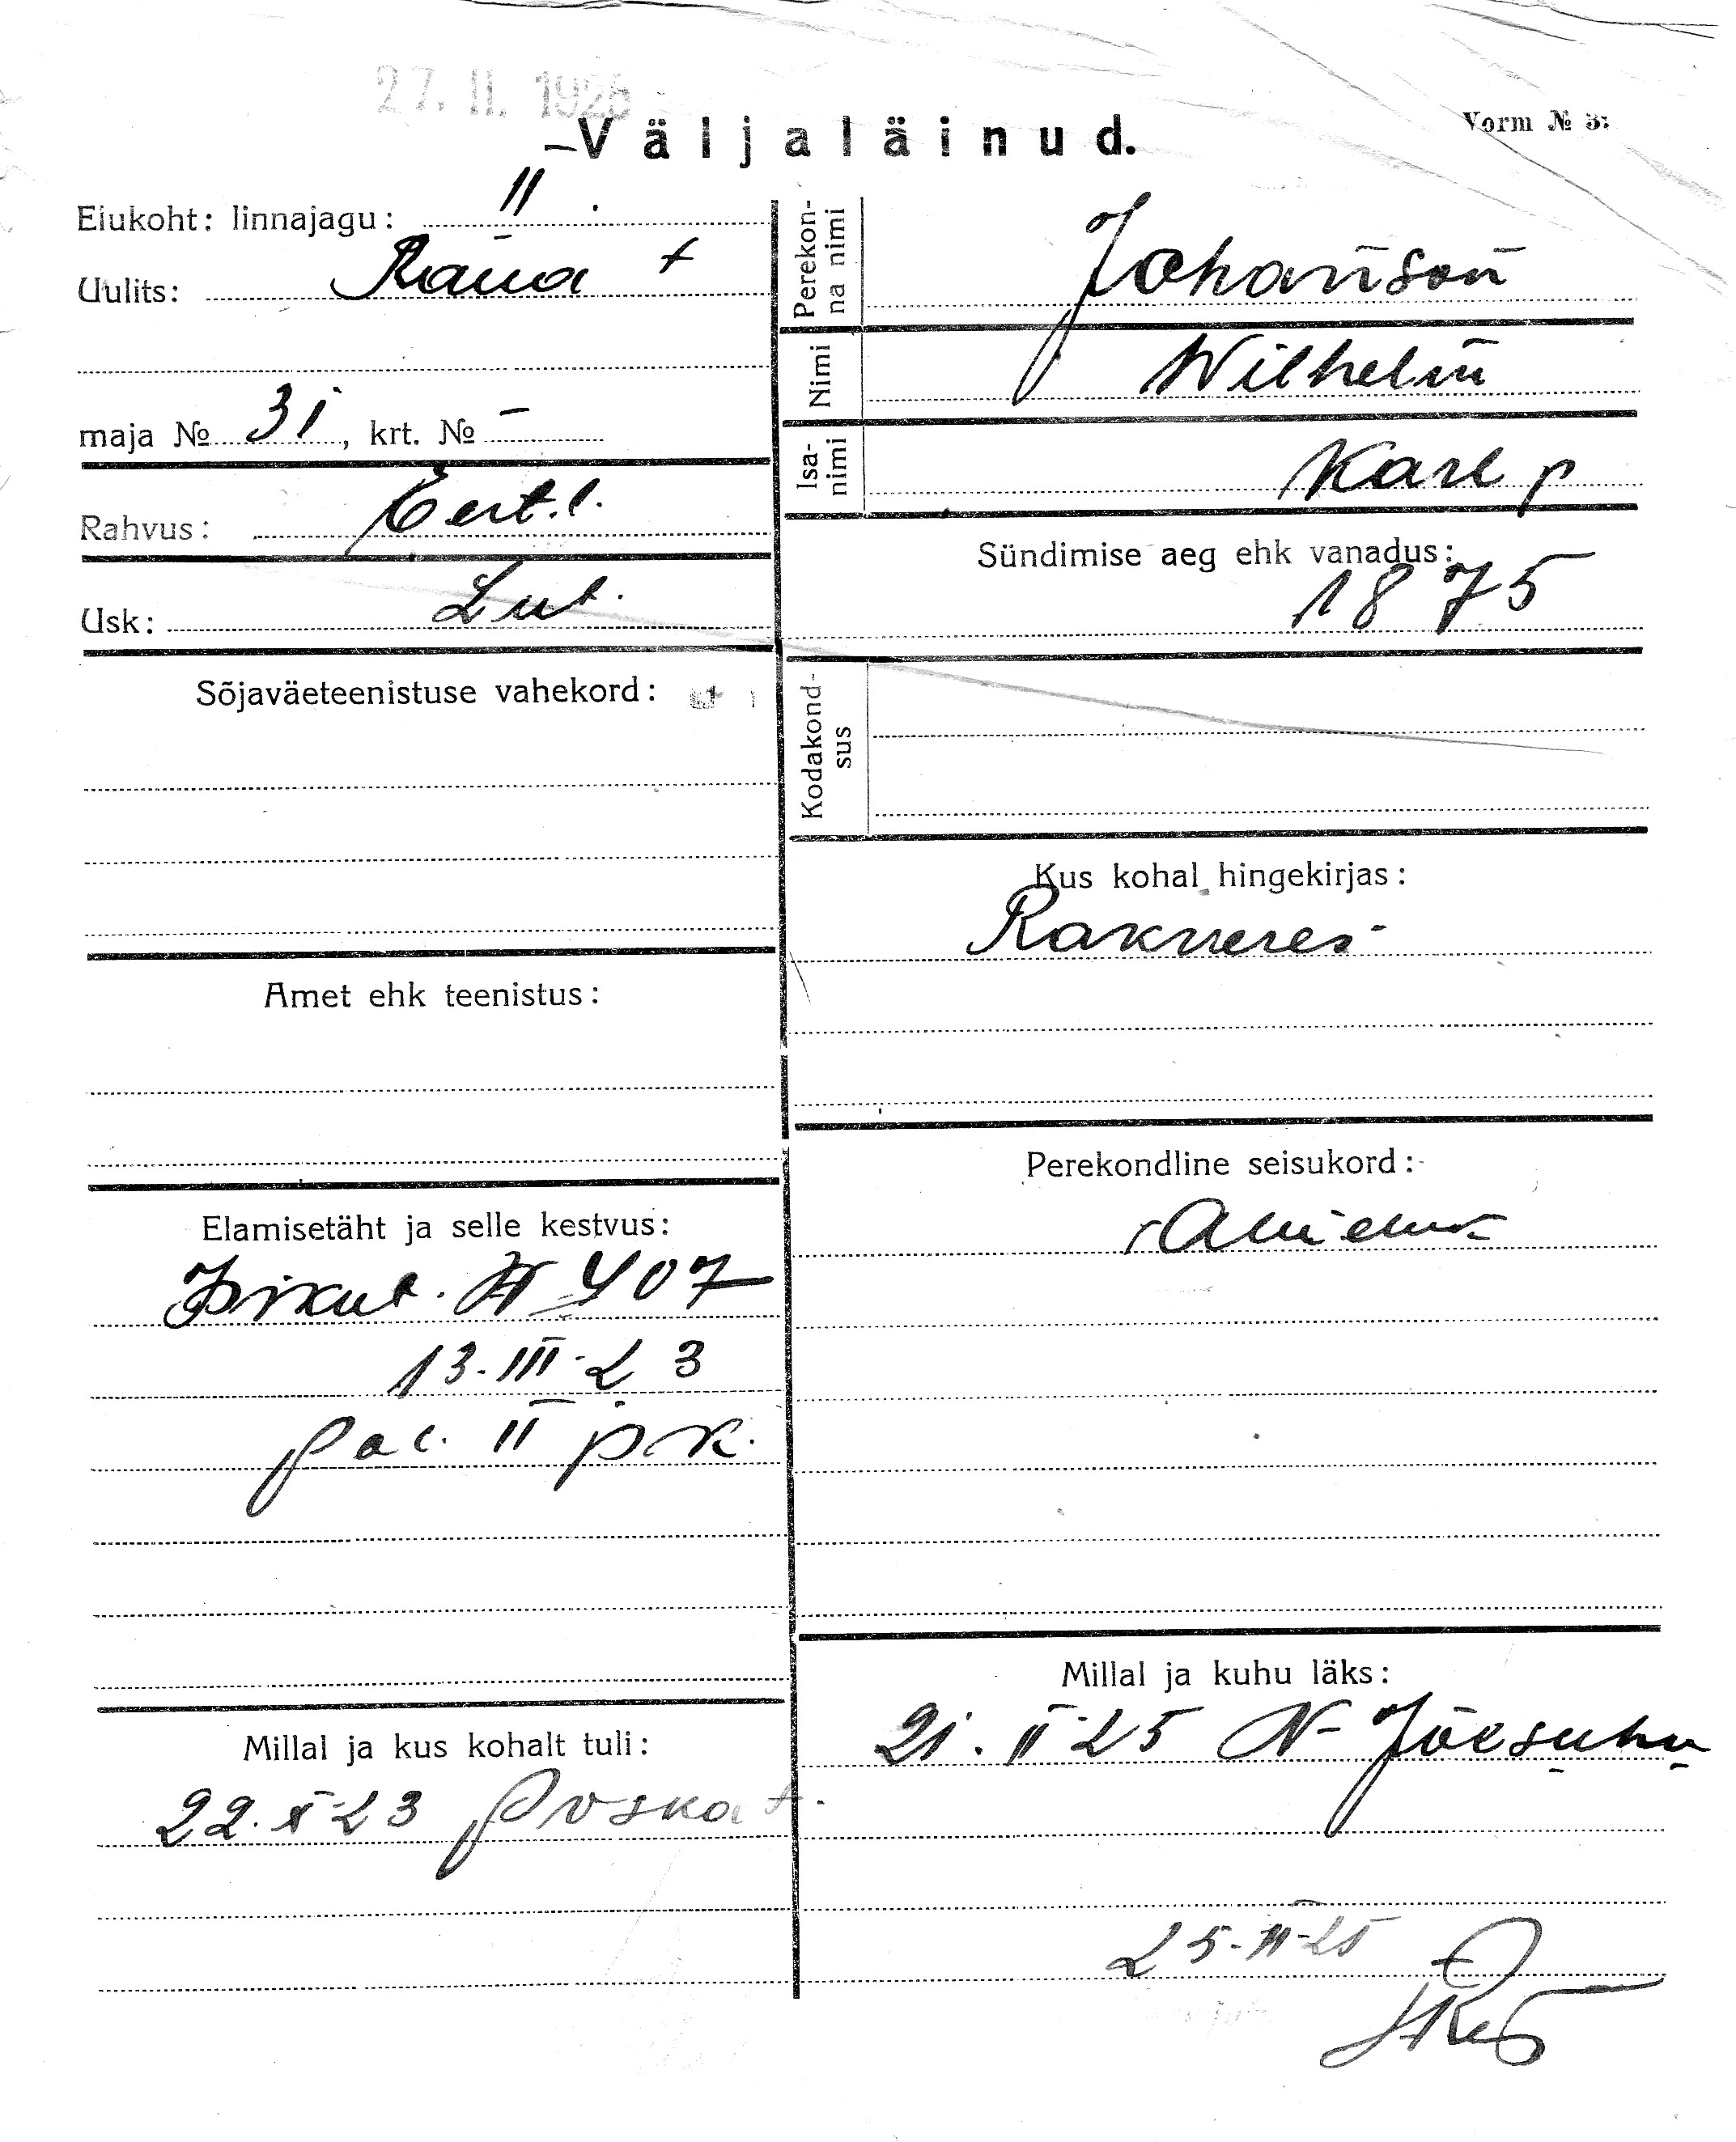 27. II. 1926
Väljaläinud.
Vorm № 3:
Elukoht: linnajagu: II
Uulits: Raua t
maja № 31, krt. № –
Rahvus: Eest.l.
Usk: Lut.
Sõjaväeteenistuse vahekord:
Amet ehk teenistus:
Elamisetäht ja selle kestvus:
Isikut. № 407
13.III.23
pol. II jsk.
Millal ja kus kohalt tuli:
22. X 23 Poska t.
Perekon-
na nimi
Johanson
Nimi
Wilhelm
Isa-
nimi
Karl p
Sündimise aeg ehk vanadus:
1875
Kodakond-
sus
Kus kohal hingekirjas:
Rakveres
Perekondline seisukord:
abielus
Millal ja kuhu läks:
21. II 25 N-Jõesuhu